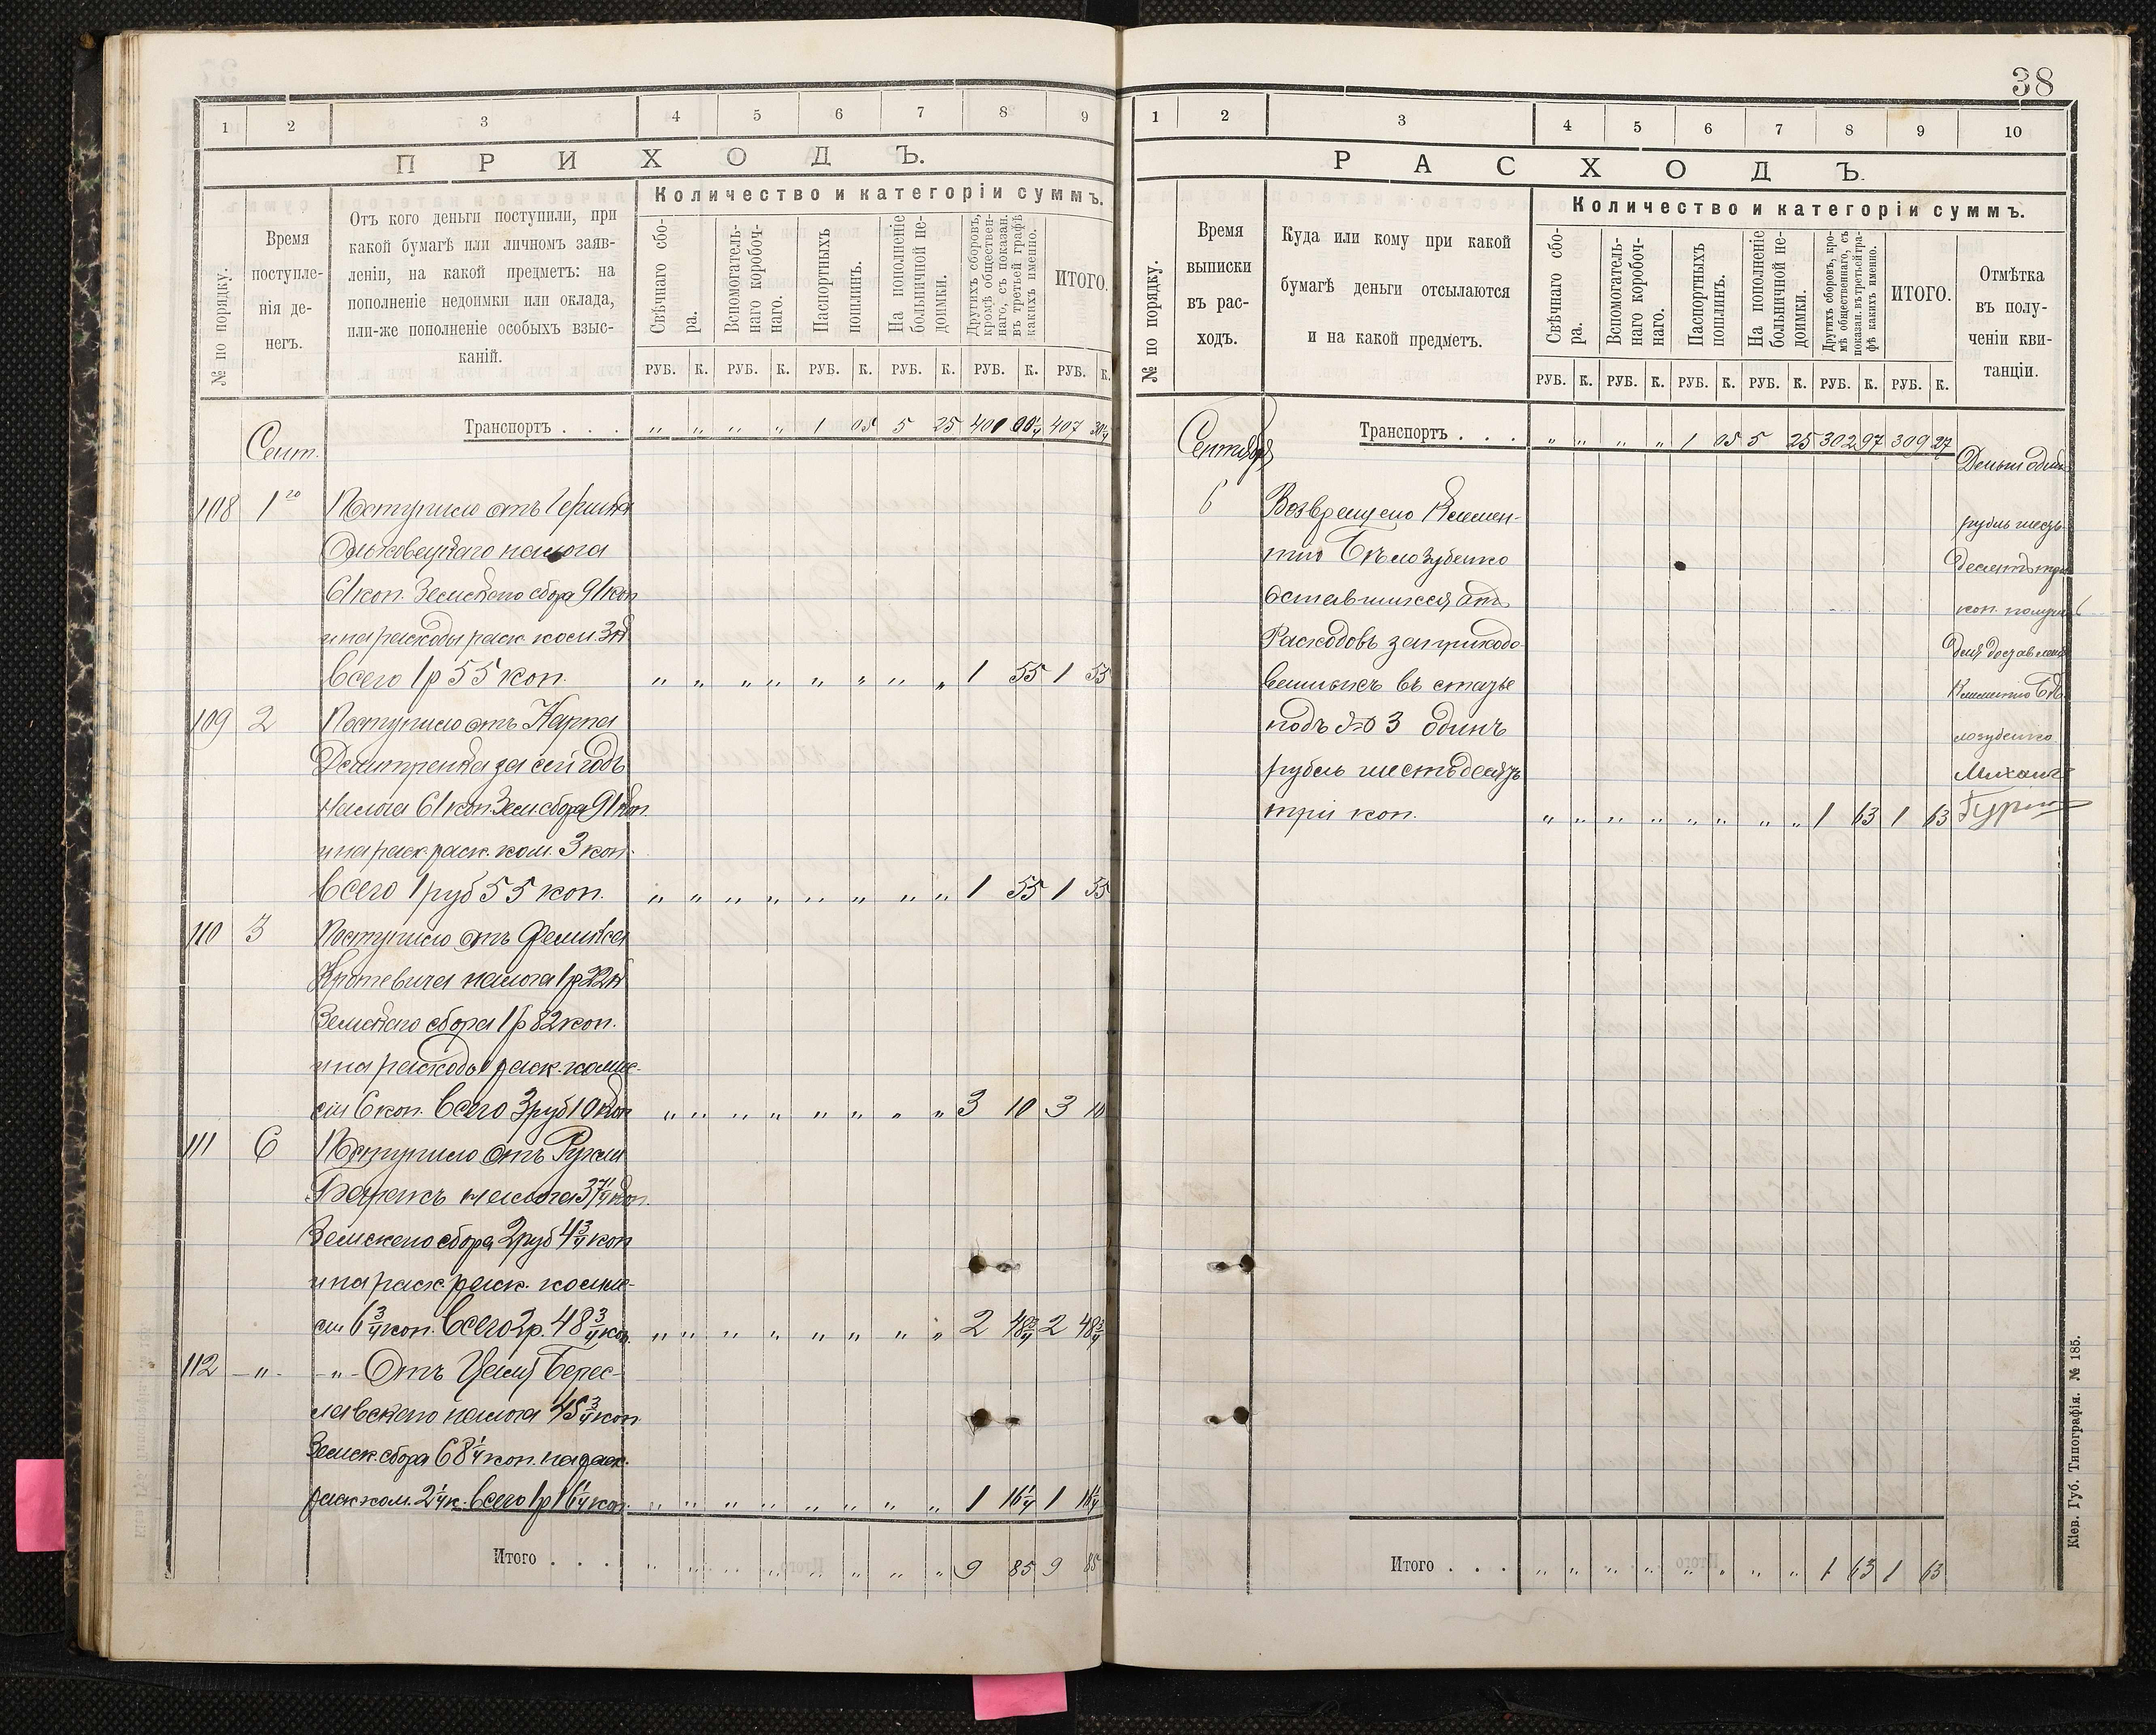 38
1 2 3 4 5 6 7 8 9
ПРИХОДЪ.
№ по порядку.
Время
поступле-
нія де-
негъ.
Отъ кого деньги поступили, при
какой бумагѣ или личномъ заяв-
леніи, на какой предметъ: на
пополненіе недоимки или оклада,
или-же пополненіе особыхъ взыс-
каній.
Количество и категоріи суммъ.
Свѣчнаго сбо-
ра.
Вспомогатель-
наго коробоч-
наго.
Паспортныхъ
пошлинъ.
На пополненіе
больничной не-
доимки.
Другихъ сборовъ,
кромѣ обществен-
наго, съ показан.
въ третьей графѣ
какихъ именно.
ИТОГО.
РУБ. К. РУБ. К. РУБ. К. РУБ. К. РУБ. К. РУБ. К.
Транспортъ . . . „ „ „ „ 1 05 5 25 400 00 1/4 407 30 1/4
Сент.
108 1го Поступило отъ
налога
61 коп. Земскаго сбора 91 коп
и на расходы раск. ком. 3 к
всего 1 р 55 коп. „ „ „ „ „ „ „ „ 1 55 1 55
109 2 Поступило отъ Карпа
Дмитренка за сей годъ
Налога 61 коп. Зем. сбора 91 коп.
и на расх. раск. ком. 3 коп.
всего 1 руб 55 коп. „ „ „ „ „ „ „ „ 1 55 1 55
110 3 Поступило отъ Феликса
Кротевича налога 1 р 22 к
Земскаго сбора 1 р 82 коп.
и на расходы раск. комис-
сіи 6 коп. всего 3 руб 10 коп „ „ „ „ „ „ „ „ 3 10 3 10
111 6 Поступило отъ
налога 37 1/4 коп.
Земскаго сбора 2 руб 4 3/4 коп
и на расх. раск. комис-
сіи 6 3/4 коп. всего 2 р. 48 3/4 коп. „ „ „ „ „ „ „ „ 2 48 3/4 2 48 3/4
112 -„- -„- Отъ Берес-
лавскаго налога 45 3/4 коп
Земск. сбора 68 1/4 коп. на расх.
раск. ком. 2 1/4 к. всего 1 р 16 1/4 коп. „ „ „ „ „ „ „ „ 1 16 1/4 1 16 1/4
Итого . . . „ „ „ „ „ „ „ „ 9 85 9 85
1 2 3 4 5 6 7 8 9 10
РАСХОДЪ.
№ по порядку.
Время
выписки
въ рас-
ходъ.
Куда или кому при какой
бумагѣ деньги отсылаются
и на какой предметъ.
Количество и категоріи суммъ.
Свѣчнаго сбо-
ра.
Вспомогатель-
наго коробоч-
наго.
Паспортныхъ
пошлинъ.
На пополненіе
больничной не-
доимки.
Другихъ сборовъ, кро-
мѣ общественнаго, съ
показан. въ третьей гра-
фѣ какихъ именно.
ИТОГО.
Отмѣтка
въ полу-
ченіи кви-
танціи.
РУБ. К. РУБ. К. РУБ. К. РУБ. К. РУБ. К. РУБ. К.
Транспортъ . . . „ „ „ „ 1 05 5 25 302 97 309 27
Сентября
6 Возвращено Клемен-
тію Бѣлозубенко
оставшихся отъ
Расходовъ заприходо-
ванныхъ въ статье
подъ № 3 одинъ
рубль шестьдесятъ
три коп. „ „ „ „ „ „ „ „ 1 63 1 63
Деньги одинъ
рубль шесть
десятъ три
коп. получилъ
для доставленія
Клементію Бѣ-
лозубенко
Михаилъ
Итого . . . „ „ „ „ „ „ „ „ 1 63 1 63
Кіев. Губ. Типографія. № 185.